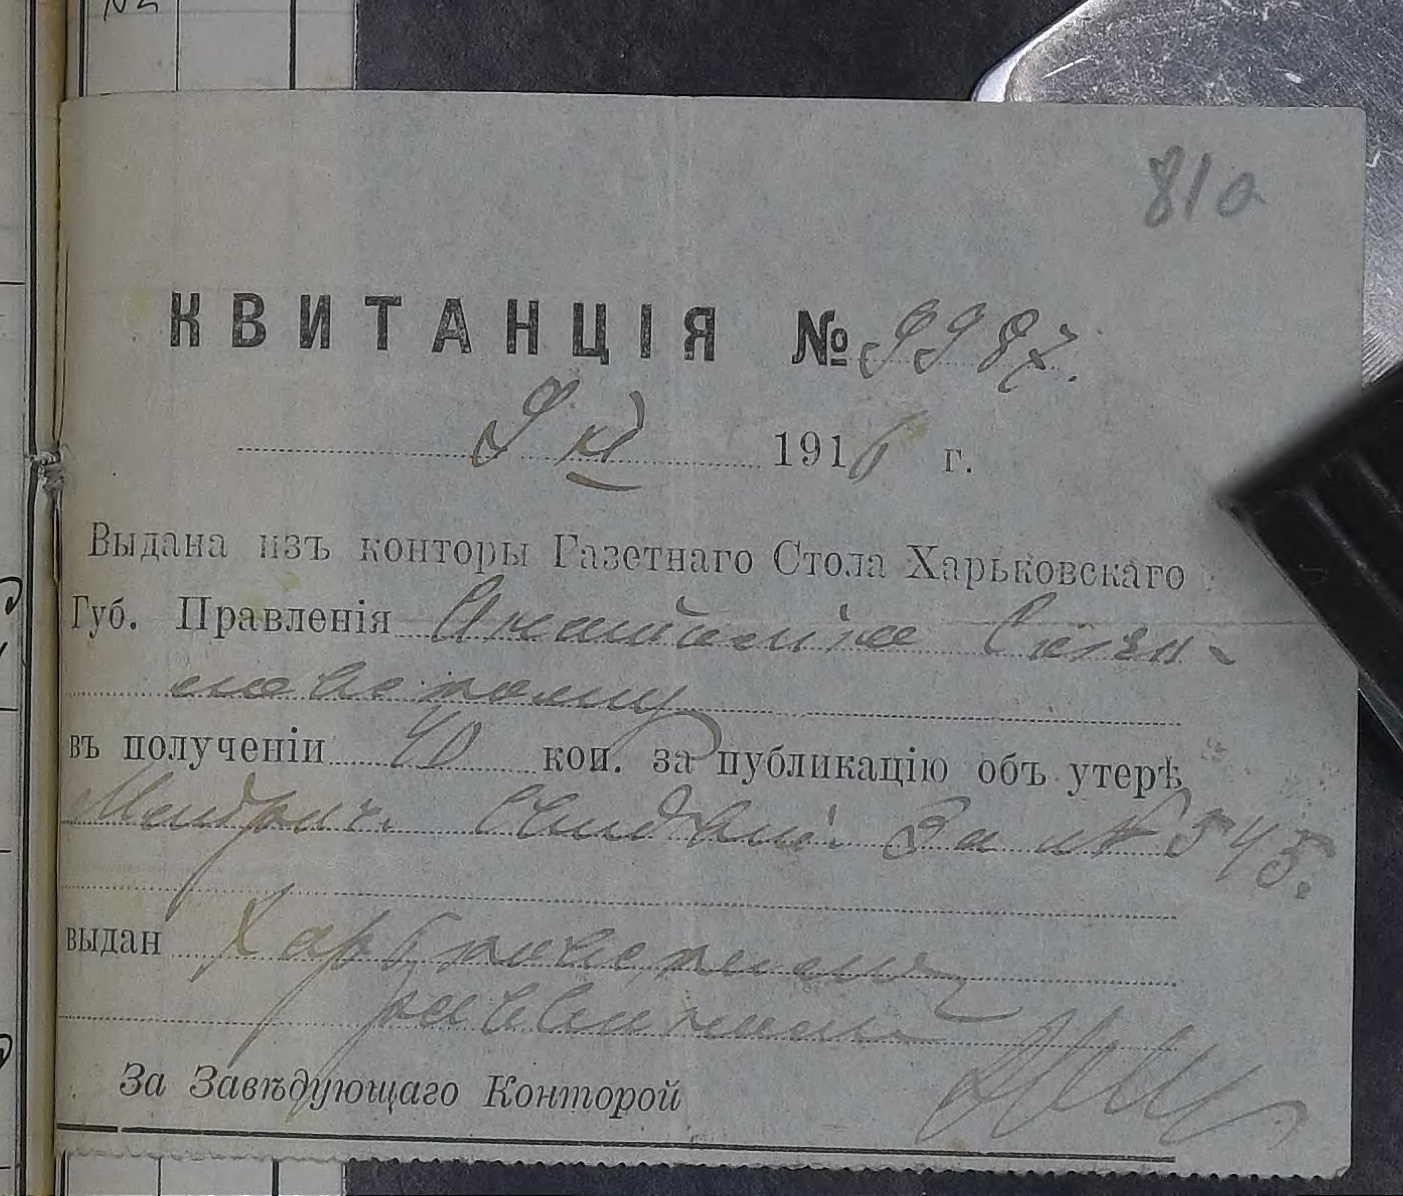 81а
КВИТАНЦІЯ № 9987.
9 XI 1916 г.
Выдана изъ конторы Газетнаго Стола Харьковскаго
Губ. Правленія
новскому
въ полученіи 40 коп. за публикацію объ утерѣ
Метрич. Свидѣт. За № 545.
выдан Харьковским
раввином
За Завѣдующаго Конторой